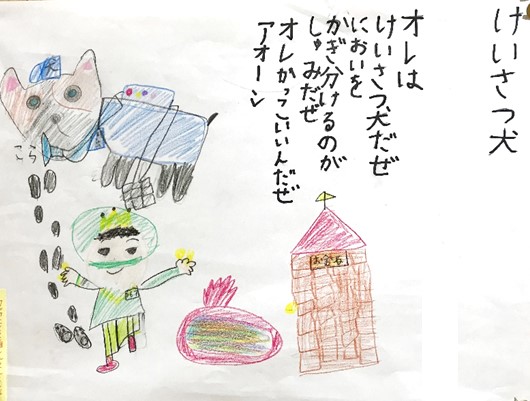 けいさつ犬
オレは
けいさつ犬だぜ
においを
かぎ分けるのが
しゅみだぜ
オレかっこいいんだぜ
アオーン
こら
こら